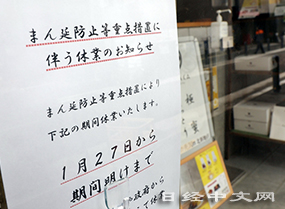 まん延防止等重点措置に
伴う休業のお知らせ
まん延防止等重点措置により
下記の期間休業いたします。
1月27日から
期間明けまで
政府から
休
日经中文网